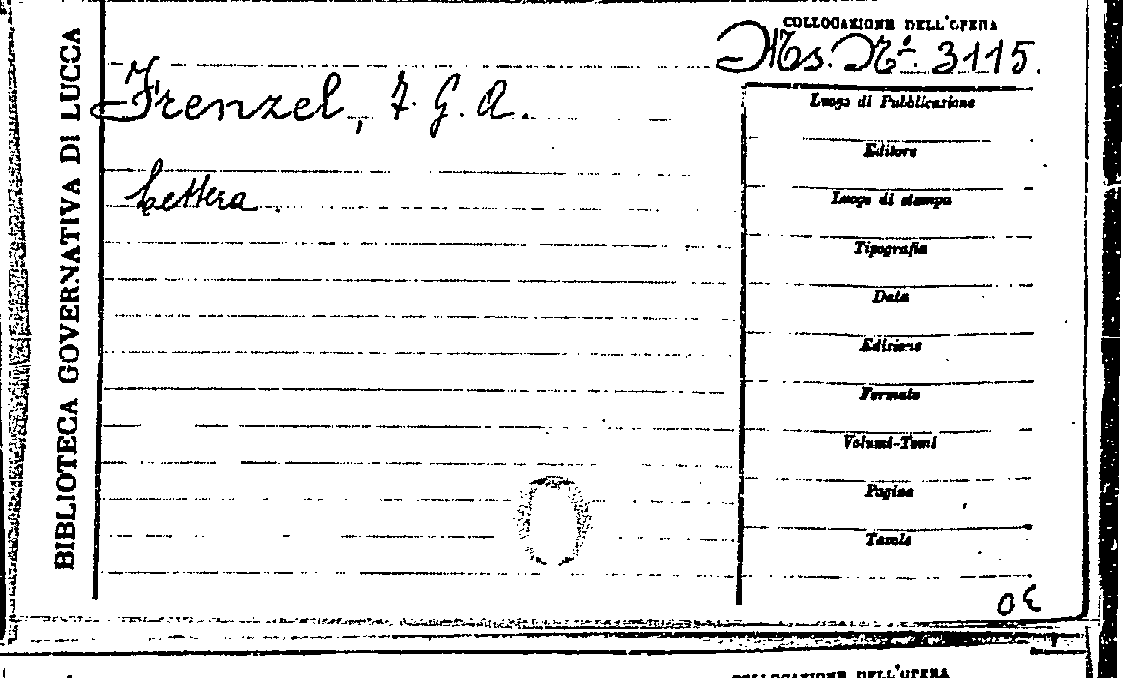 BIBLIOTECA GOVERNATIVA DI LUCCA
COLLOCAZIONE DELL'OPERA
Ms. N.º 3115.
Frenzel, F. G. A.
Lettera.
Luogo di Pubblicazione
Editore
Luogo di stampa
Tipografia
Data
Edizione
Formato
Volumi-Tomi
Pagine
Tavole
COLLOCAZIONE DELL'OPERA